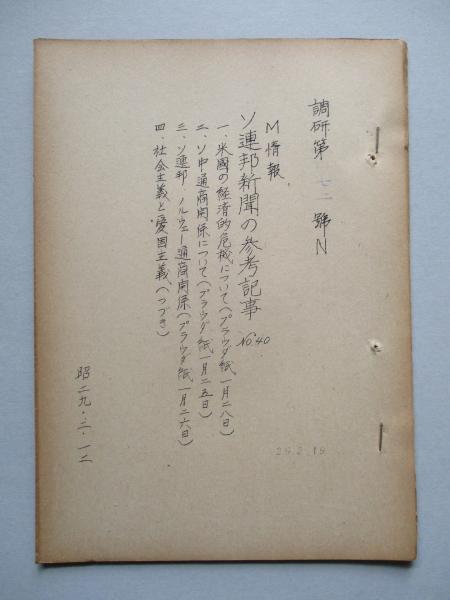 調研第七二號N
M情報
ソ連邦新聞の参考記事 No.40
一、米國の経済的危機について(プラウダ紙一月二八日)
二、ソ中通商関係について(プラウダ紙一月二五日)
三、ソ連邦、ノルウェー通商関係(プラウダ紙一月二六日)
四、社会主義と愛国主義(つづき)
昭二九・二・一二
29.2.19